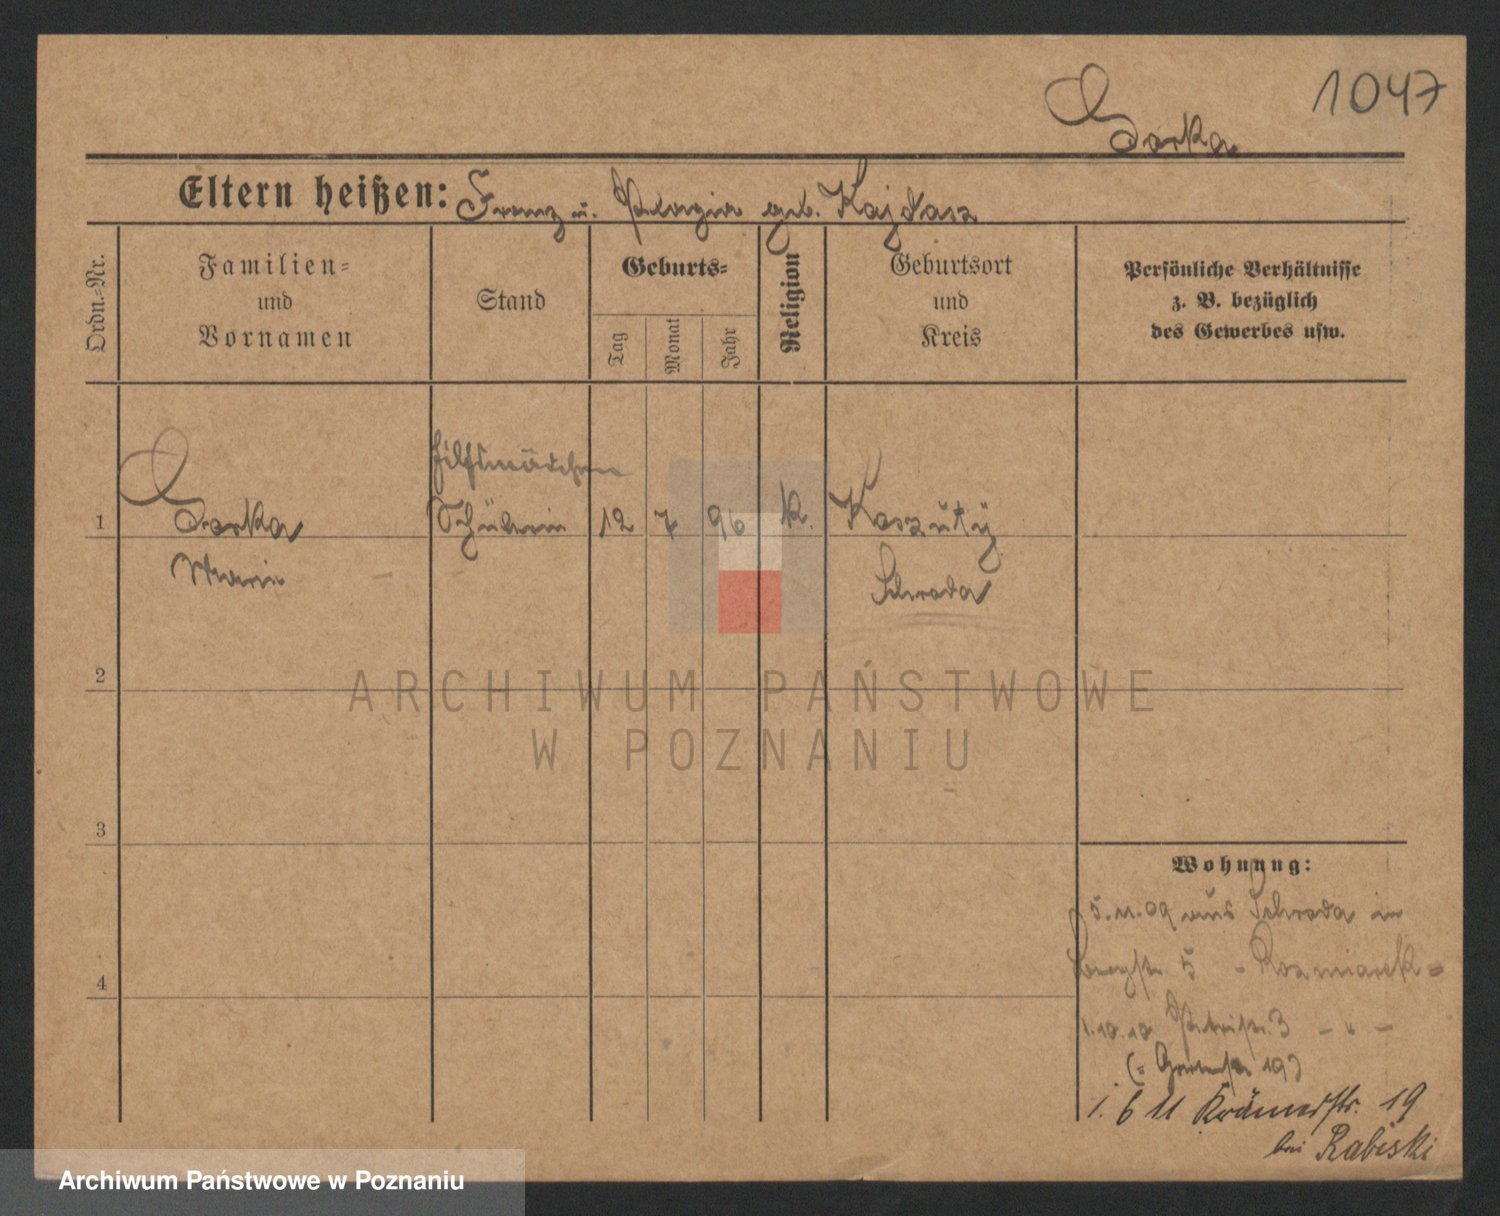 1047
Eltern heißen: Franz u. Pelagia geb. Kajdasz
Ordn.-Nr.
Familien-
und
Vornamen
Stand
Geburts-
Tag
Monat
Jahr
Religion
Geburtsort
und
Kreis
Persönliche Verhältnisse
z. B. bezüglich
des Gewerbes usw.
Hilfsmädchen
1 Schülerin 12 7 96 k. Koszuty
Marie Schroda
2
ARCHIWUM PAŃSTWOWE
W POZNANIU
3
Wohnung:
5.11.09 aus Schroda in
5 - Rozmiarek -
4
1.10.10 Petristr. 3 - " -
(= Gartenstr. 19)
1. 6 11 Krämerstr. 19
bei Rabiski
Archiwum Państwowe w Poznaniu